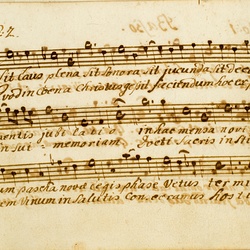 Sit laus plena sit sonora sit jucunda sit dec
in Coena Christus gessit faciendum hoc ex
mentis jubilatio in hac mensa novi
in sui memoriam Docti Sacris in
um pascha novae legis phase Vetus termi
em Vinum in Salutis Consecramus Hosti